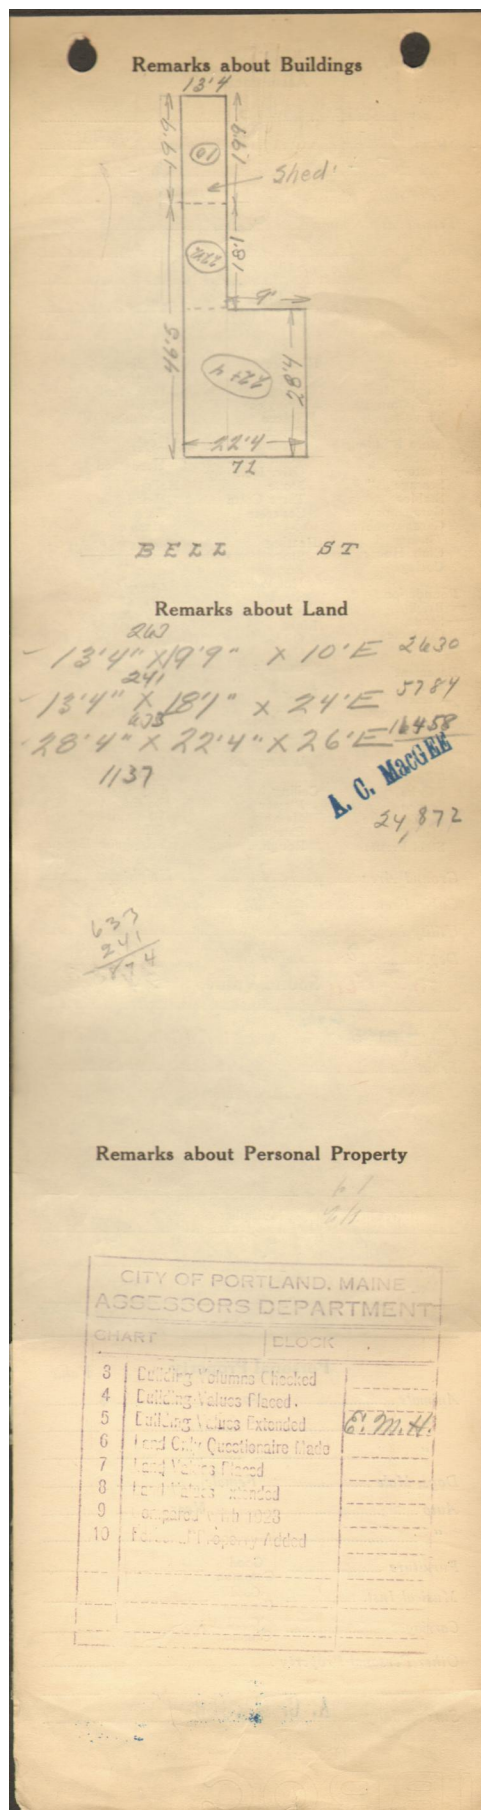 Remarks about Buildings
13'4
19'9
10
19'9
Shed
18'1
9'
46'5
28'4
22'4
72
BELL ST
Remarks about Land
263
13'4" X 19'9" X 10'E 2630
241
13'4" X 18'1" X 24'E 5784
633
28'4" X 22'4" X 26'E 16458
1137
A. C. MacGEE
24,872
633
241
874
Remarks about Personal Property
CITY OF PORTLAND, MAINE
ASSESSORS DEPARTMENT
CHART BLOCK
3 Building Volumes Checked
4 Building Values Placed.
5 Building Values Extended E.M.H.
6 Land Only Questionaire Made
7 Land Values Placed
8 Land Values Extended
9 Compared with 1923
10 Personal Property Added